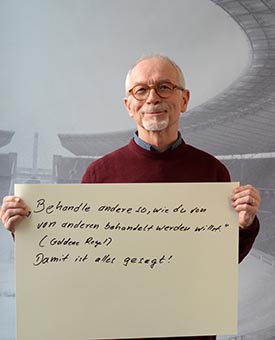 „Behandle andere so, wie du von
von anderen behandelt werden willst."
(Goldene Regel)
Damit ist alles gesagt!